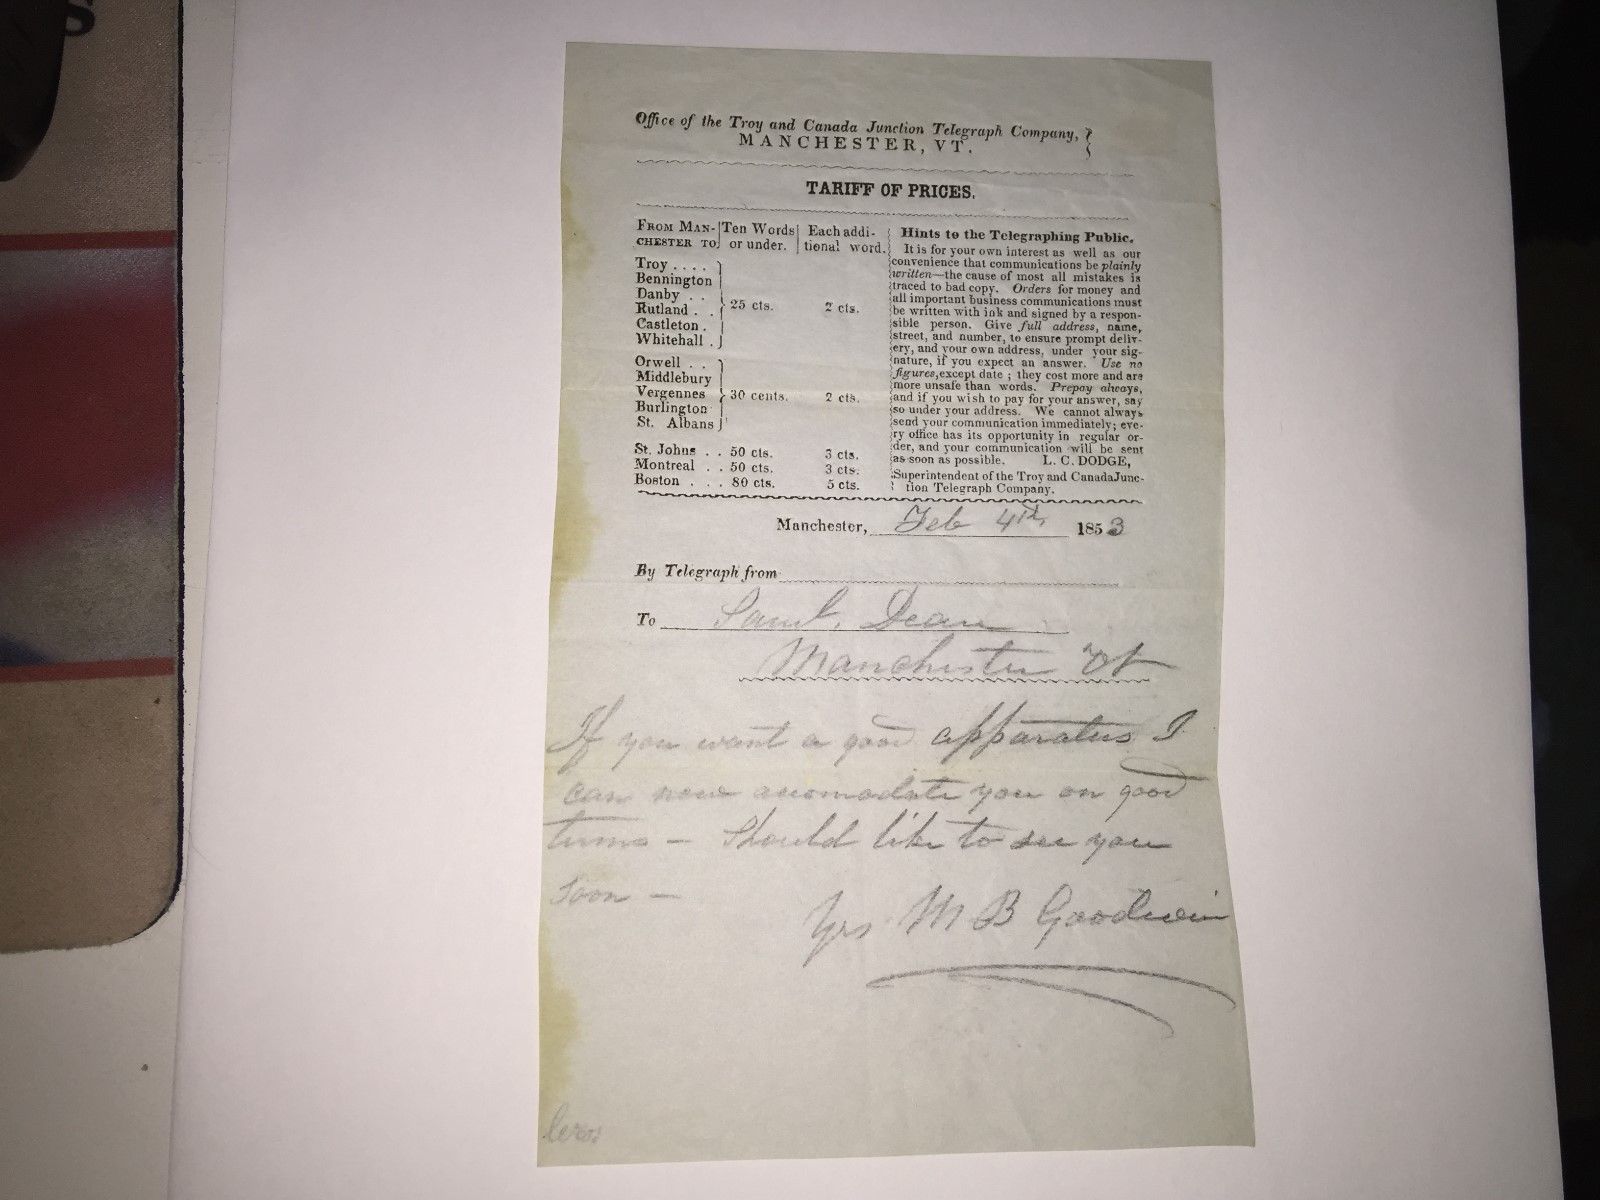 Office of the Troy and Canada Junction Telegraph Company,
MANCHESTER, VT.
TARIFF OF PRICES.
FROM MAN-
CHESTER TO
Ten Words
or under.
Each addi-
tional word.
Troy . . . .
Bennington
Danby . .
Rutland . .
Castleton .
Whitehall .
25 cts.
2 cts.
Orwell . .
Middlebury
Vergennes
Burlington
St. Albans
30 cents.
2 cts.
St. Johns . . 50 cts. 3 cts.
Montreal . . 50 cts. 3 cts.
Boston . . . 80 cts. 5 cts.
Hints to the Telegraphing Public.
It is for your own interest as well as our
convenience that communications be plainly
written—the cause of most all mistakes is
traced to bad copy. Orders for money and
all important business communications must
be written with ink and signed by a respon-
sible person. Give full address, name,
street, and number, to ensure prompt deliv-
ery, and your own address, under your sig-
nature, if you expect an answer. Use no
figures, except date ; they cost more and are
more unsafe than words. Prepay always,
and if you wish to pay for your answer, say
so under your address. We cannot always
send your communication immediately; eve-
ry office has its opportunity in regular or-
der, and your communication will be sent
as soon as possible. L. C. DODGE,
Superintendent of the Troy and Canada Junc-
tion Telegraph Company.
Manchester, Feb 4th 1853
By Telegraph from
To Saml. Dean
Manchester Vt
If you want a good apparatus I
can now accomodate you on good
terms — Should like to see you
soon —
Yrs M B Goodwin